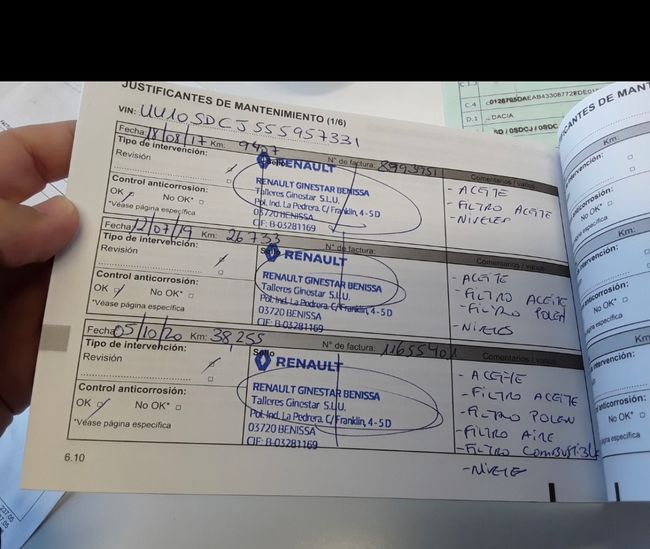 JUSTIFICANTES DE MANTENIMIENTO (1/6)
VIN: UU10SDCJ555957331
Fecha: 18/08/17 Km: 9407 N° de factura: 8993951
Tipo de intervención: Sello Comentarios / varios
Revisión
RENAULT
RENAULT GINESTAR BENISSA
Talleres Ginestar S.L.U.
Pol. Ind. La Pedrera. C/ Franklin, 4 - 5 D
03720 BENISSA
CIF: B-03281169
Control anticorrosión:
OK No OK*
*Véase página específica
- ACEITE
- FILTRO ACEITE
- NIVELES
Fecha: 12/07/19 Km: 26733 N° de factura:
Tipo de intervención: Sello Comentarios / varios
Revisión
RENAULT
RENAULT GINESTAR BENISSA
Talleres Ginestar S.L.U.
Pol. Ind. La Pedrera. C/ Franklin, 4 - 5 D
03720 BENISSA
CIF: B-03281169
Control anticorrosión:
OK No OK*
*Véase página específica
- ACEITE
- FILTRO ACEITE
- FILTRO POLEN
- NIVELES
Fecha: 05/10/20 Km: 38,255 N° de factura: 11655401
Tipo de intervención: Sello Comentarios / varios
Revisión
RENAULT
RENAULT GINESTAR BENISSA
Talleres Ginestar S.L.U.
Pol. Ind. La Pedrera. C/ Franklin, 4 - 5 D
03720 BENISSA
CIF: B-03281169
Control anticorrosión:
OK No OK*
*Véase página específica
- ACEITE
- FILTRO ACEITE
- FILTRO POLEN
- FILTRO AIRE
- FILTRO COMBUSTIBLE
- NIVELE
6.10
C.4
D.1 DACIA
Km:
No OK*
Km
No OK*
No OK*